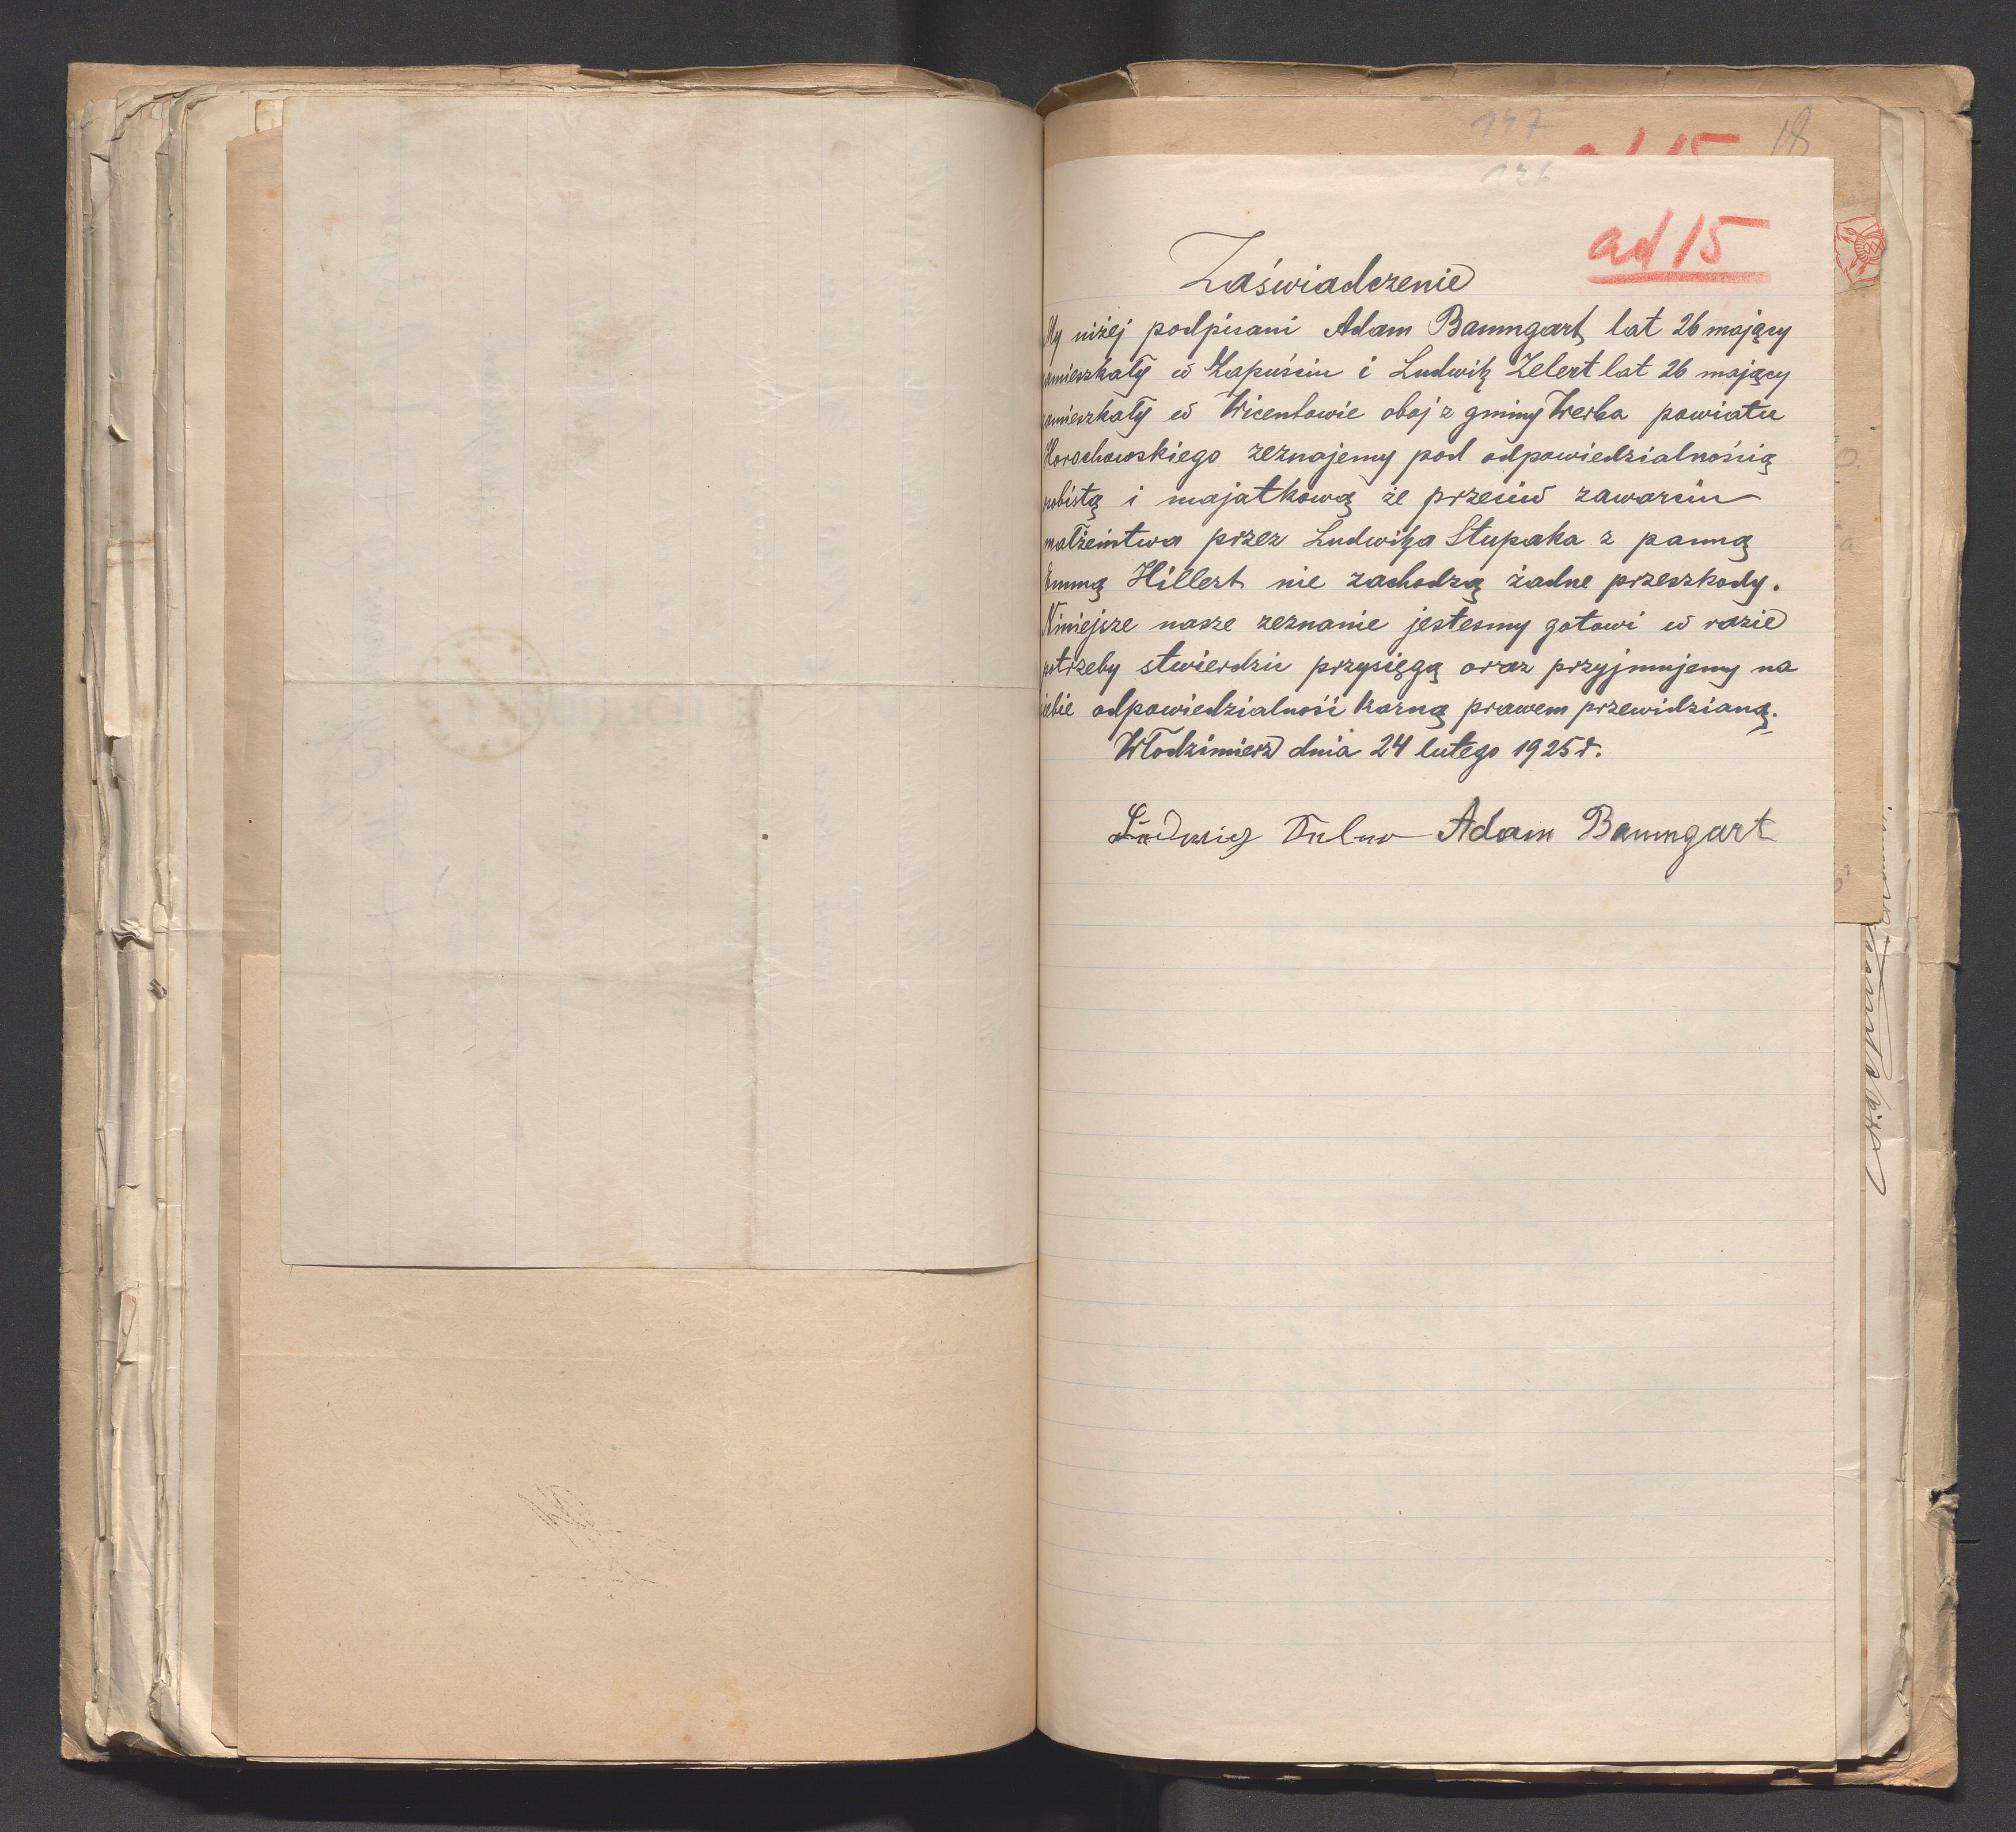 147
18
126
ad 15
Zaświadczenie
My niżej podpisani Adam Baumgart lat 26 mający
zamieszkały w Zapuściu i Ludwik Zelert lat 26 mający
zamieszkały w Wicentowie oboj z gminy Werba powiatu
Horochowskiego zeznajemy pod odpowiedzialnością
osobistą i majatkową że przeciw zawarciu
małżeintwa przez Ludwika Stupaka z panną
Emmą Hillert nie zachodzą żadne przeszkody.
Niniejsze nasze zeznanie jestesmy gotowi w razie
potrzeby stwierdzic przysięgą oraz przyjmujemy na
siebie odpowiedzialność karną prawem przewidzianą.
Włodzimierz dnia 24 lutego 1925 r.
Ludwig Adam Baumgart